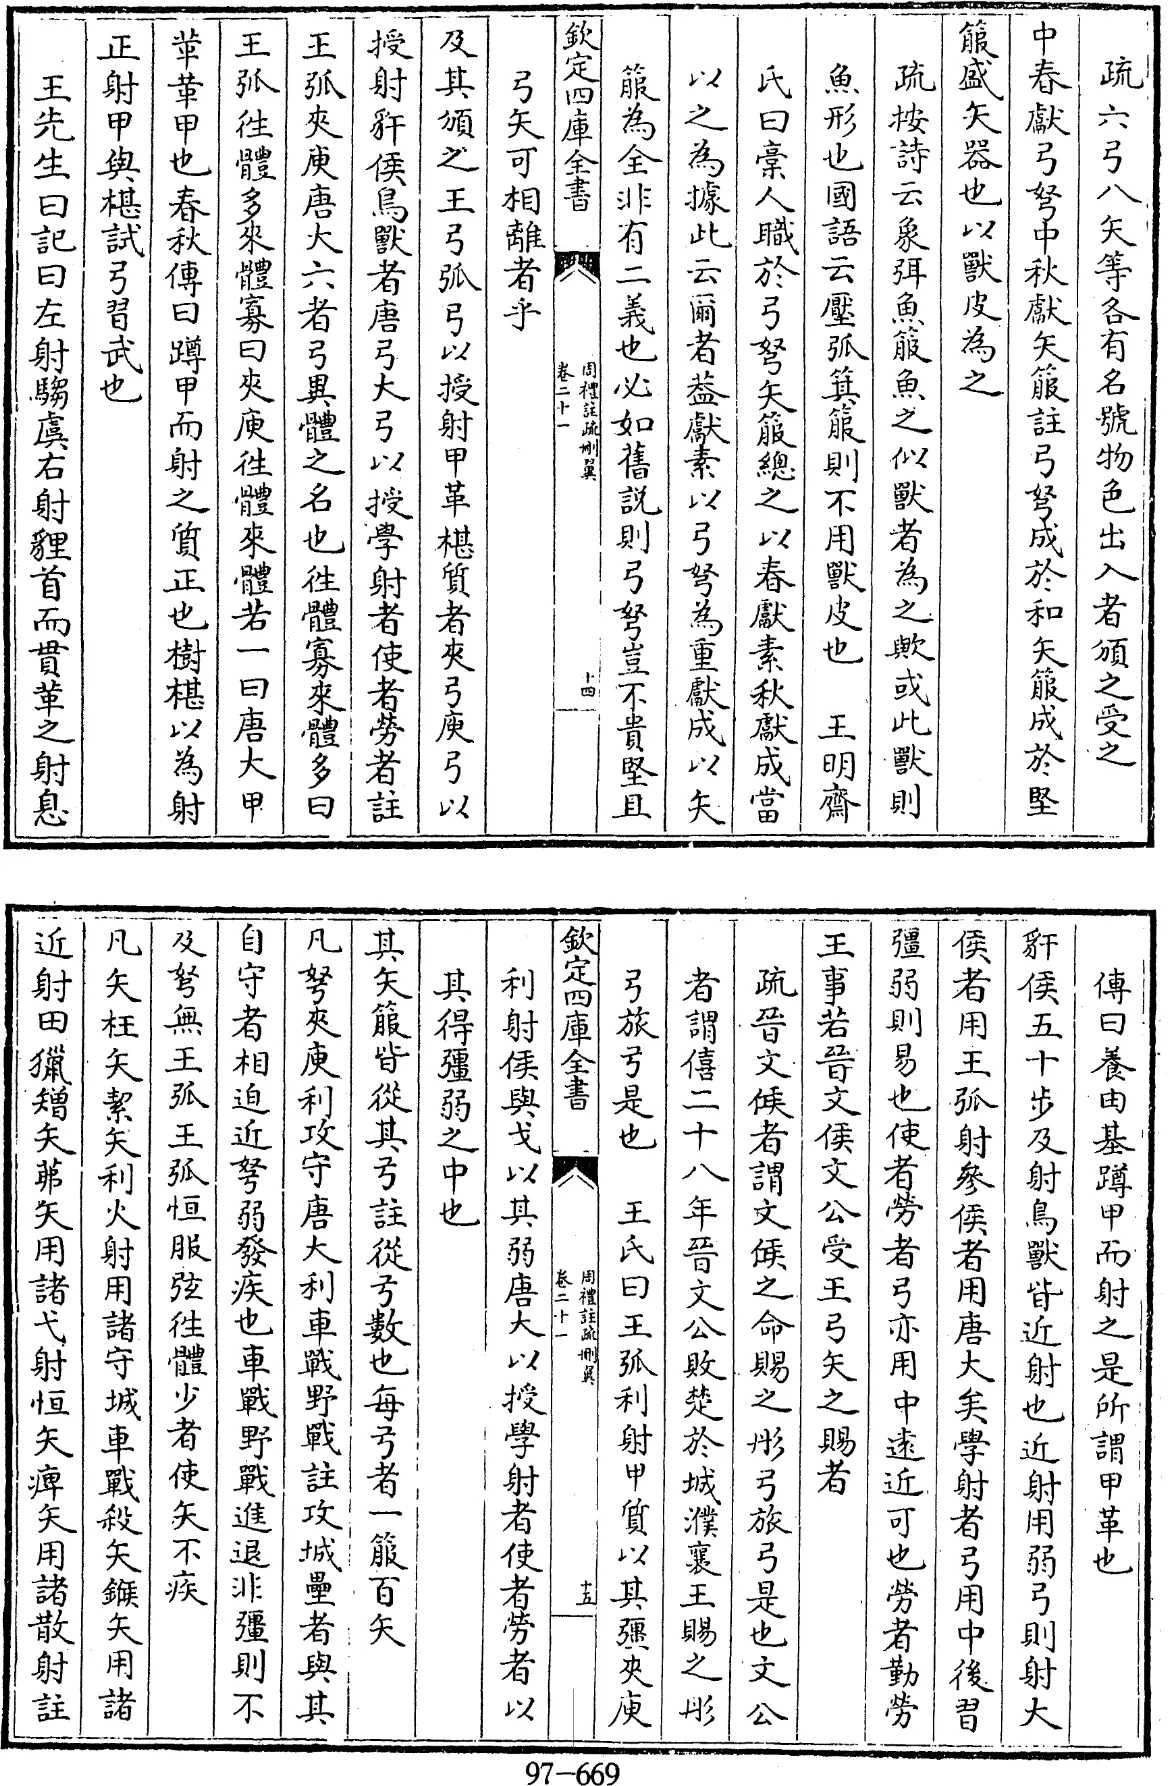 疏六弓八矢等各有名號物色出入者頒之受之
中春獻弓弩中秋獻矢箙註弓弩成於和矢箙成於堅
箙盛矢器也以獸皮為之
疏按詩云象弭魚箙魚之似獸者為之歟或此獸則
魚形也國語云壓弧箕箙則不用獸皮也　王明齋
氏曰稾人職於弓弩矢箙總之以春獻素秋獻成當
以之為據此云爾者葢獻素以弓弩為重獻成以矢
箙為全非有二義也必如舊說則弓弩豈不貴堅且
欽定四庫全書
周禮註疏刪翼
卷二十一
十四
弓矢可相離者乎
及其頒之王弓弧弓以授射甲革椹質者夾弓庾弓以
授射豻侯鳥獸者唐弓大弓以授學射者使者勞者註
王弧夾庾唐大六者弓異體之名也徃體寡來體多曰
王弧徃體多來體寡曰夾庾徃體來體若一曰唐大甲
革革甲也春秋傳曰蹲甲而射之質正也樹椹以為射
正射甲與椹試弓習武也
王先生曰記曰左射騶虞右射貍首而貫革之射息
傳曰養由基蹲甲而射之是所謂甲革也
豻侯五十步及射鳥獸皆近射也近射用弱弓則射大
侯者用王弧射參侯者用唐大矣學射者弓用中後習
彊弱則易也使者勞者弓亦用中遠近可也勞者勤勞
王事若晉文侯文公受王弓矢之賜者
疏晉文侯者謂文侯之命賜之彤弓旅弓是也文公
者謂僖二十八年晉文公敗楚於城濮襄王賜之彤
弓旅弓是也　王氏曰王弧利射甲質以其彊夾庾
欽定四庫全書
周禮註疏刪翼
卷二十一
十五
利射侯與弋以其弱唐大以授學射者使者勞者以
其得彊弱之中也
其矢箙皆從其弓註從弓數也每弓者一箙百矢
凡弩夾庾利攻守唐大利車戰野戰註攻城壘者與其
自守者相迫近弩弱發疾也車戰野戰進退非彊則不
及弩無王弧王弧恒服弦徃體少者使矢不疾
凡矢枉矢絜矢利火射用諸守城車戰殺矢鍭矢用諸
近射田獵矰矢茀矢用諸弋射恒矢痺矢用諸散射註
97-669